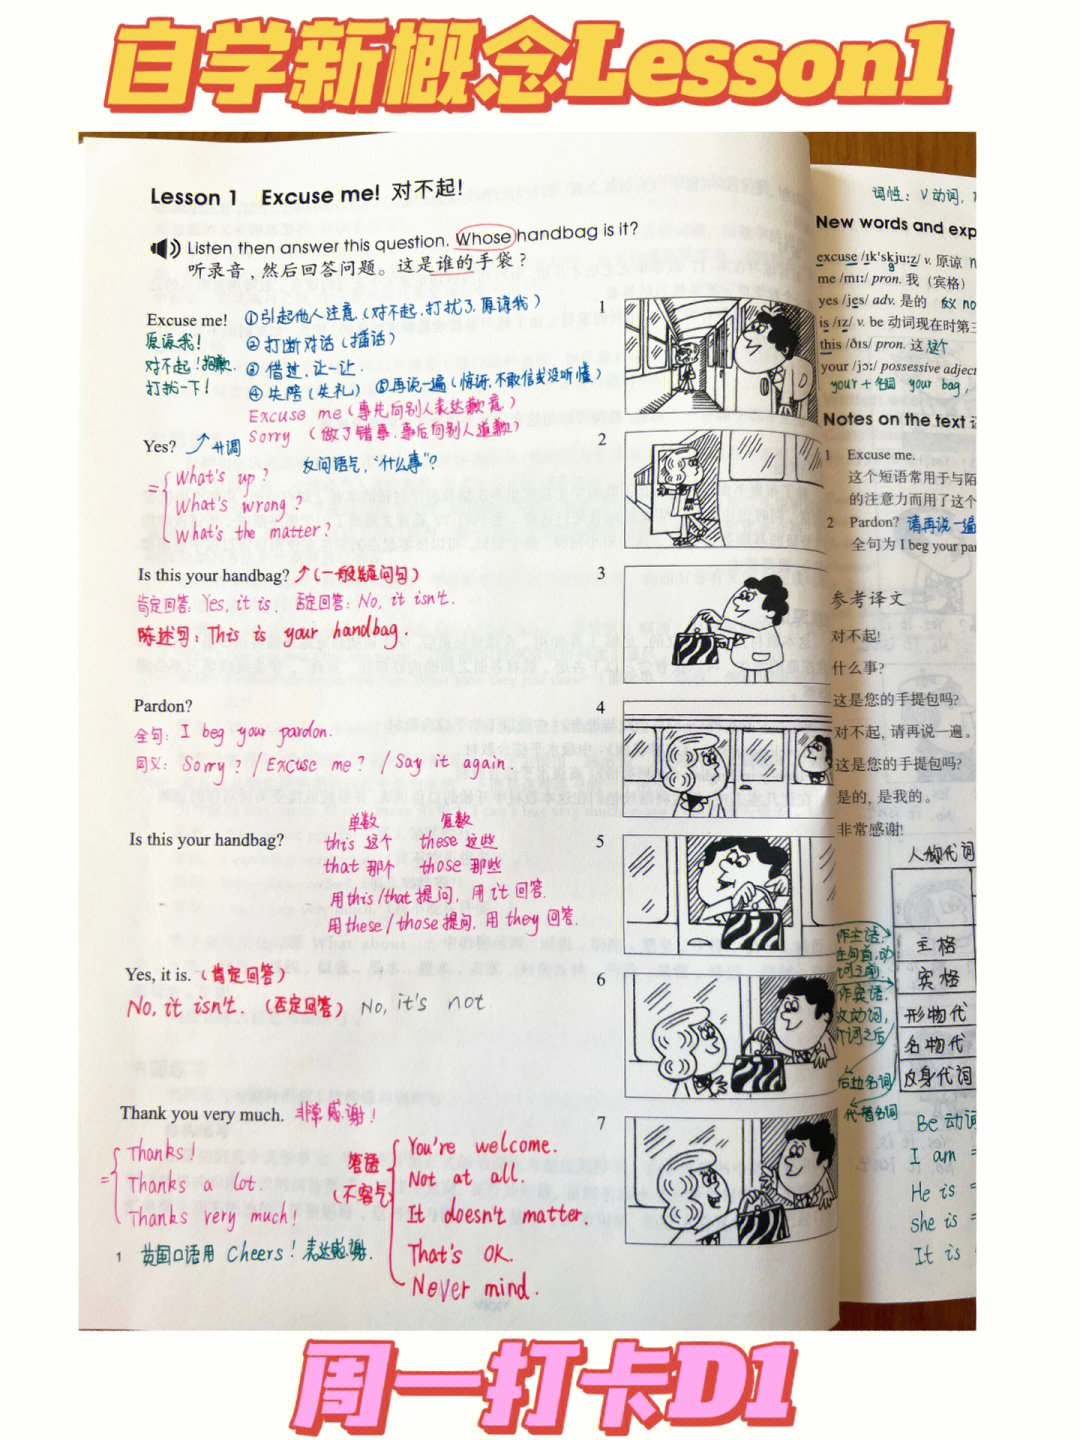 自学新概念Lesson1
Lesson 1 Excuse me! 对不起!
Listen then answer this question. Whose handbag is it?
听录音,然后回答问题。这是谁的手袋?
Excuse me!
原谅我!
对不起!抱歉.
打扰一下!
①引起他人注意.(对不起,打扰了,原谅我)
②打断对话(插话)
③借过,让一让.
④失陪(失礼) ⑤再说一遍(惊讶,不敢信或没听懂)
Excuse me(事先向别人表达歉意)
Sorry (做了错事.事后向别人道歉)
Yes? 升调
反问语气,"什么事"?
= What's up?
What's wrong?
What's the matter?
Is this your handbag? (一般疑问句)
肯定回答: Yes, it is. 否定回答: No, it isn't.
陈述句: This is your handbag.
Pardon?
全句: I beg your pardon.
同义: Sorry? / Excuse me? / Say it again.
Is this your handbag?
单数 复数
this 这个 these 这些
that 那个 those 那些
用this/that提问,用it回答.
用these/those提问,用they回答.
Yes, it is.(肯定回答)
No, it isn't.(否定回答) No, it's not
Thank you very much. 非常感谢!
= Thanks!
Thanks a lot.
Thanks very much!
答语
(不客气)
You're welcome.
Not at all.
It doesn't matter.
That's OK.
Never mind.
1 英国口语用 Cheers! 表达感谢.
1
2
3
4
5
6
7
词性: V动词,
New words and exp
excuse /ɪk'skju:z/ v. 原谅
me /mi:/ pron. 我(宾格)
yes /jes/ adv. 是的 反 no
is /ɪz/ v. be 动词现在时第三
this /ðɪs/ pron. 这 这个
your /jɔ:/ possessive adject
your+名词 your bag,
Notes on the text
1 Excuse me.
这个短语常用于与陌
的注意力而用了这个
2 Pardon? 请再说一遍
全句为 I beg your par
参考译文
对不起!
什么事?
这是您的手提包吗?
对不起,请再说一遍。
这是您的手提包吗?
是的,是我的。
非常感谢!
人称代词
主格
宾格
形物代
名物代
反身代词
作主语,
在句首,动
词之前.
作宾语,
放动词,
介词之后
后加名词
代替名词
Be动词
I am =
He is =
she is =
It is
周一打卡D1